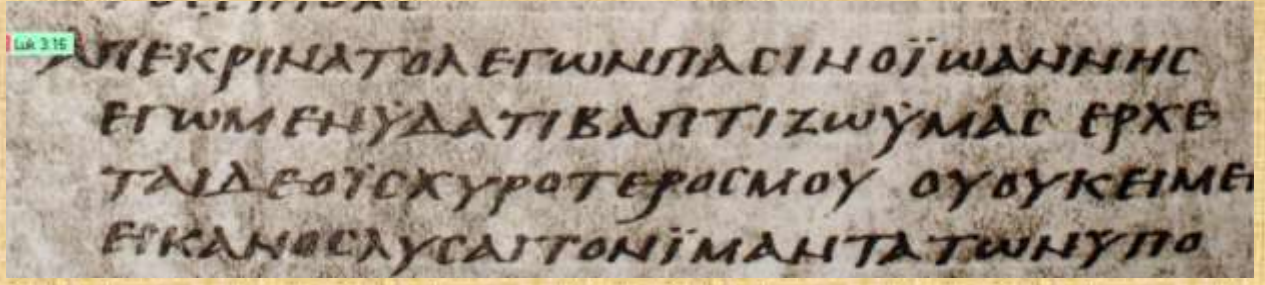 Luk 3:16
ΑΠΕΚΡΙΝΑΤΟΛΕΓΩΝΠΑϹΙΝΟΪΩΑΝΝΗϹ
ΕΓΩΜΕΝΫΔΑΤΙΒΑΠΤΙΖΩΫΜΑϹ ΕΡΧΕ
ΤΑΙΔΕΟΪϹΧΥΡΟΤΕΡΟϹΜΟΥ ΟΥΟΥΚΕΙΜΕΙ
ΕΙΚΑΝΟϹΛΥϹΑΙΤΟΝΪΜΑΝΤΑΤΩΝΥΠΟ